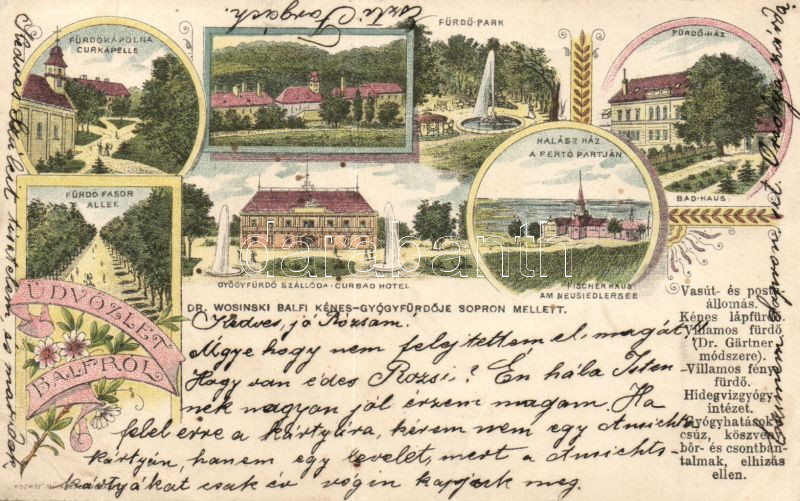 FÜRDŐKÁPOLNA
CURKAPELLE
FÜRDŐ-PARK
FÜRDŐ-HÁZ
BAD-HAUS
HALÁSZ HÁZ
A FERTŐ PARTJÁN
FISCHERHAUS
AM NEUSIEDLERSEE
FÜRDŐ FASOR
ALLEE
GYÓGYFÜRDŐ SZÁLLÓDA · CURBAD HOTEL
DR. WOSINSKI BALFI KÉNES-GYÓGYFÜRDŐJE SOPRON MELLETT.
ÜDVÖZLET
BALFRÓL
darabanth
Vasút- és posta
állomás.
Kénes lápfürdő.
Villamos fürdő
(Dr. Gärtner
módszere).
-Villamos fény-
fürdő.
Hidegvizgyógy
intézet.
Gyógyhatások:
csúz, köszvény
bőr- és csontbán-
talmak, elhizás
ellen.
Kedves, jó Rózsam.
Ugye hogy nem felejtettem el, magát!!
Hogy van édes Rozsi? Én hála Isten-
nek nagyon jól érzem magam. Ha
felel erre a kártyára, kérem nem egy Ansichts
kártyán, hanem egy levelet, mert a Ansichts
kártyákat csak év végin kapjuk meg.